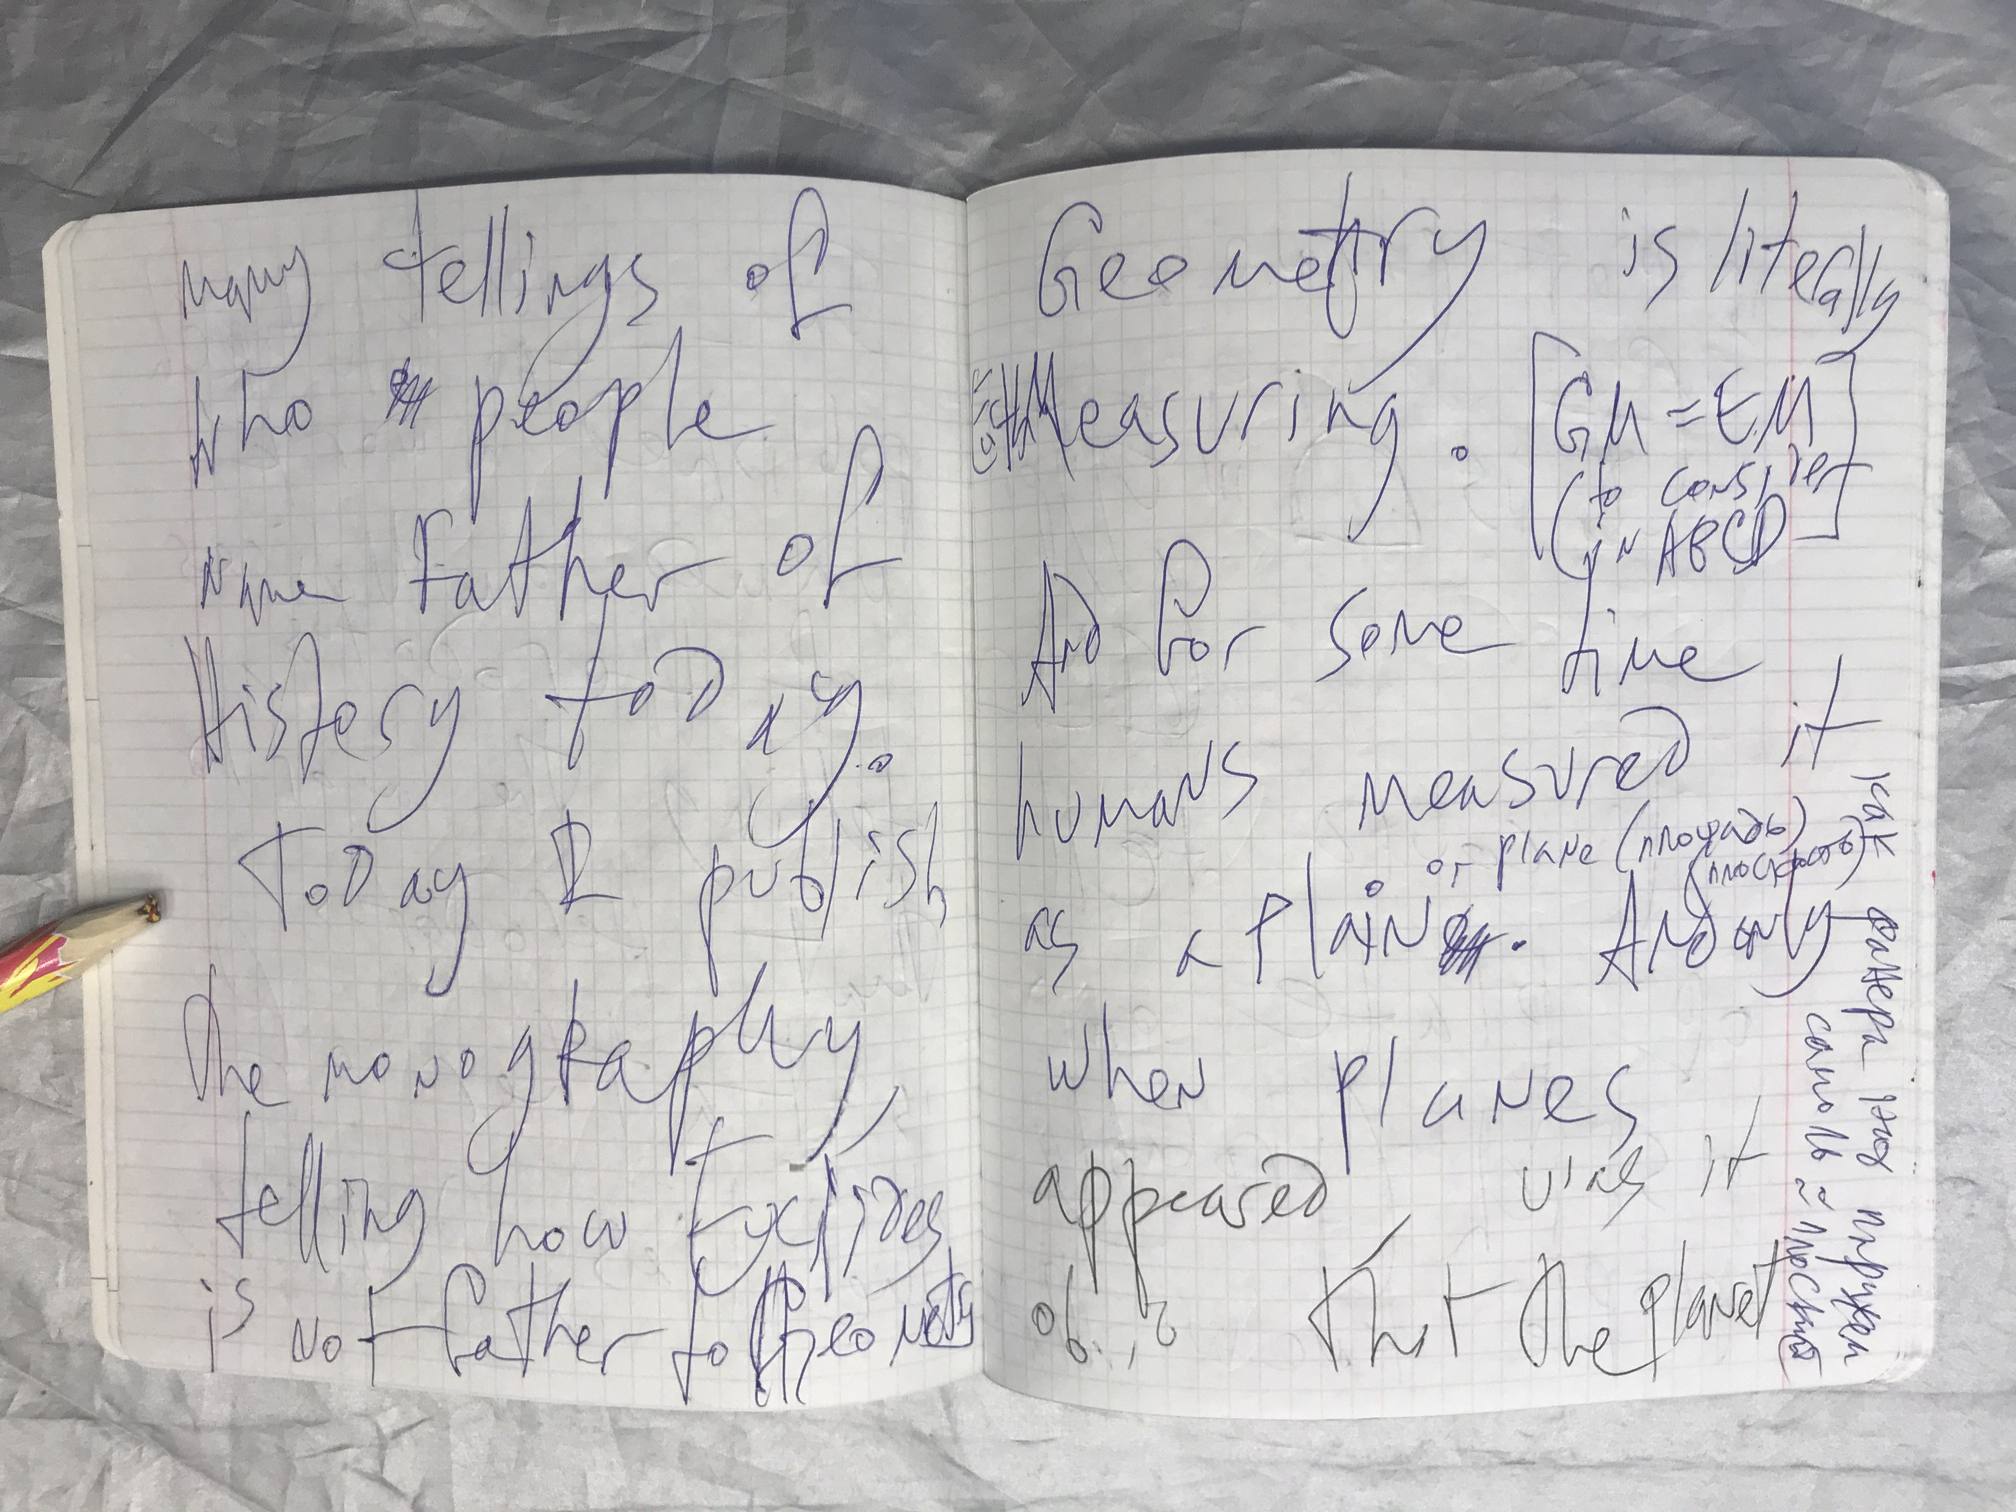 many tellings of
who people
name Father of
History today.
Today I publish
the monography,
telling how Euclides
is not father to Geometry
Geometry is literally
Earth Measuring. [GM = EM
(to consider
in ABCD]
And for some time
humans measured it
or plane (площадь)
as a plain. And only
when planes appeared, was it
that the planet
как фанера
самоль ≈ плоский